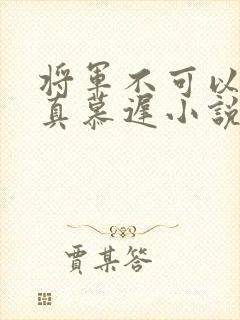 將軍不可以
真慕遲小說
賈某答